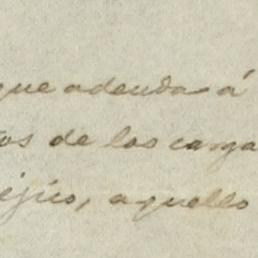 que adeuda á
os de las carga
ejico, aquello